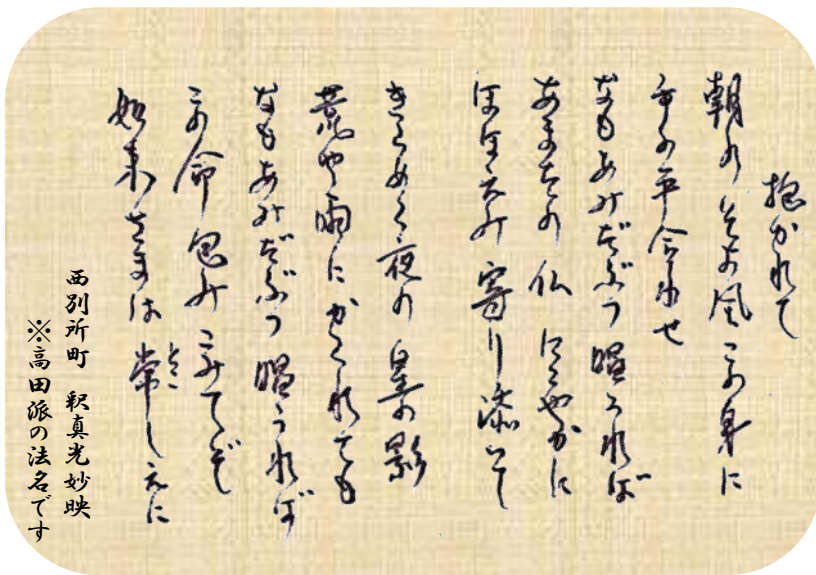 抱かれて
朝のそよ風この身に
手の平合わせ
なもあみだぶつ唱うれば
あまたの仏にこやかに
ほほえみ寄り添いて
きらめく夜の星の影
荒や雨にかくれても
なもあみだぶつ唱うれば
この命包みこみてぞ
如来さまは常しえに
とこ
西別所町 釈真光妙映
※高田派の法名です